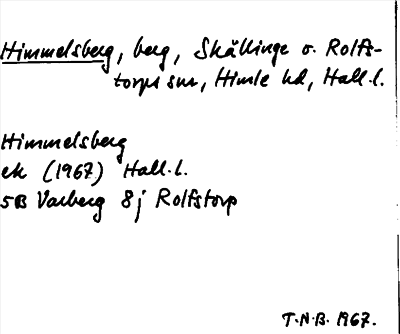 Himmelsberg, berg, Skällinge o. Rolfs-
torps snr, Himle hd, Hall. l.
Himmelsberg
ek (1967) Hall. l.
5B Varberg 8j Rolfstorp
T.N.B. 1967.